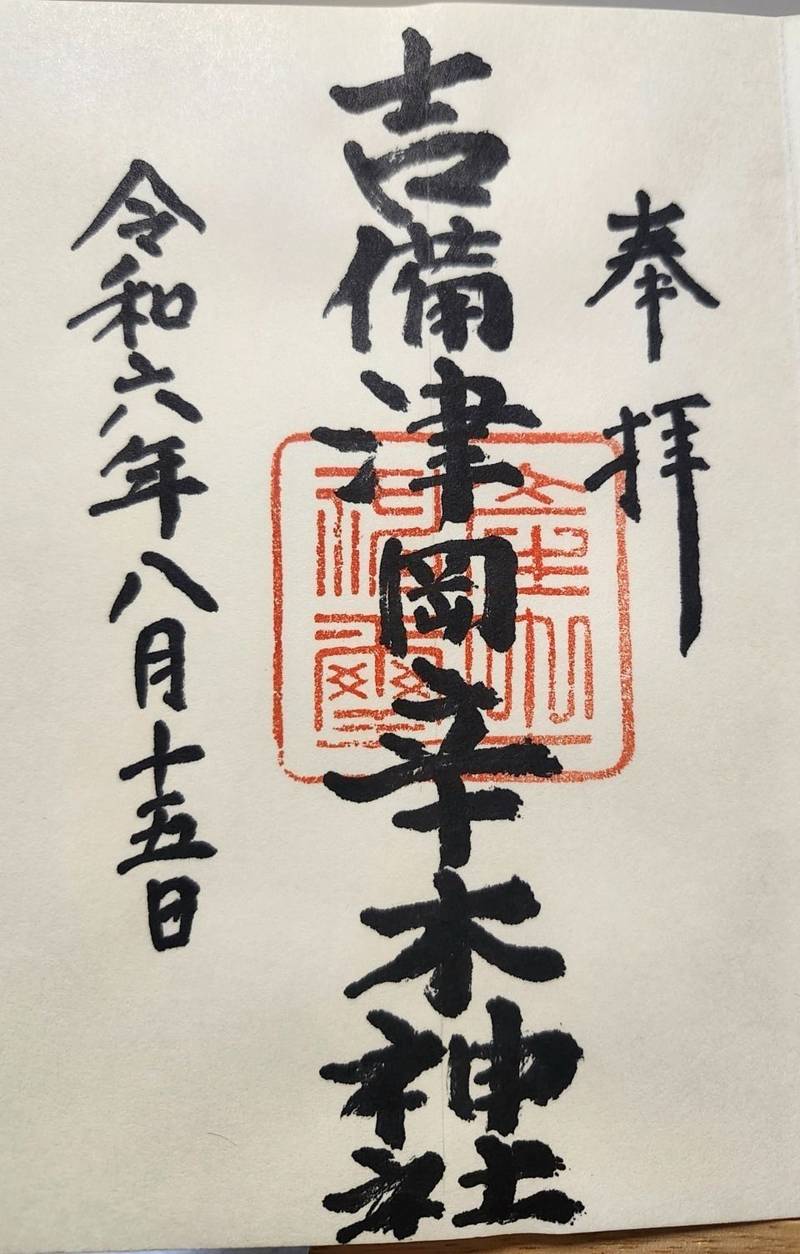 奉拝
吉備津岡辛木神社
令和六年八月十五日